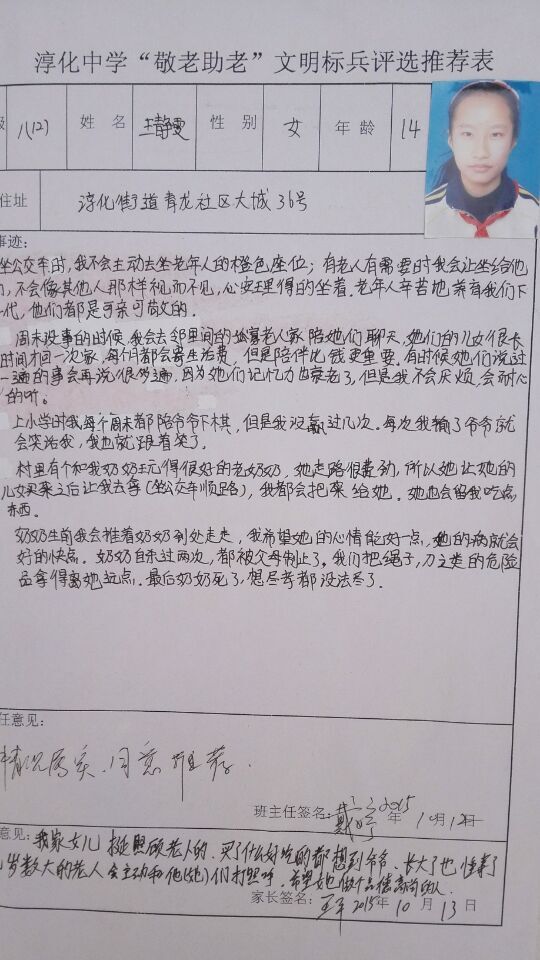 淳化中学“敬老助老”文明标兵评选推荐表
级 八(12) 姓 名 王静雯 性 别 女 年 龄 14
住址 淳化街道青龙社区大城36号
事迹：
坐公交车时,我不会主动去坐老年人的橙色座位；有老人有需要时我会让坐给他
们,不会像其他人那样视而不见,心安理得的坐着。老年人辛苦地养育我们下
一代,他们都是可亲可敬的。
周末没事的时候,我会去邻里间的 老人家陪她们聊天,她们的儿女很长
时间才回一次家,每个月都会寄生活费,但是陪伴比钱更重要。有时候她们说过
一遍的事会再说很多遍,因为她们记忆力 衰老了,但是我不会厌烦,会耐心
的听。
上小学时我每个周末都陪爷爷下棋,但是我没赢过几次。每次我输了爷爷就
会笑话我,我也就跟着笑了。
村里有个和我奶奶玩得很好的老奶奶,她走路很费劲,所以她让她的
儿女买菜之后让我去拿(坐公交车顺路),我都会把菜给她。她也会留我吃点
东西。
奶奶生前我会推着奶奶到处走走,我希望她的心情能好一点,她的病就会
好的快点。奶奶自杀过两次,都被父母制止了。我们把绳子,刀之类的危险
品拿得离她远点。最后奶奶死了,想尽孝都没法尽了。
任意见：
情况属实,同意推荐.
班主任签名： 2015年10月12日
意见：我家女儿挺照顾老人的,买了什么好吃的都想到爷爷、长大了也懂事了
岁数大的老人会主动和他(她)们打招呼.希望她做个品德高尚的人.
家长签名：王平 2015年10月13日